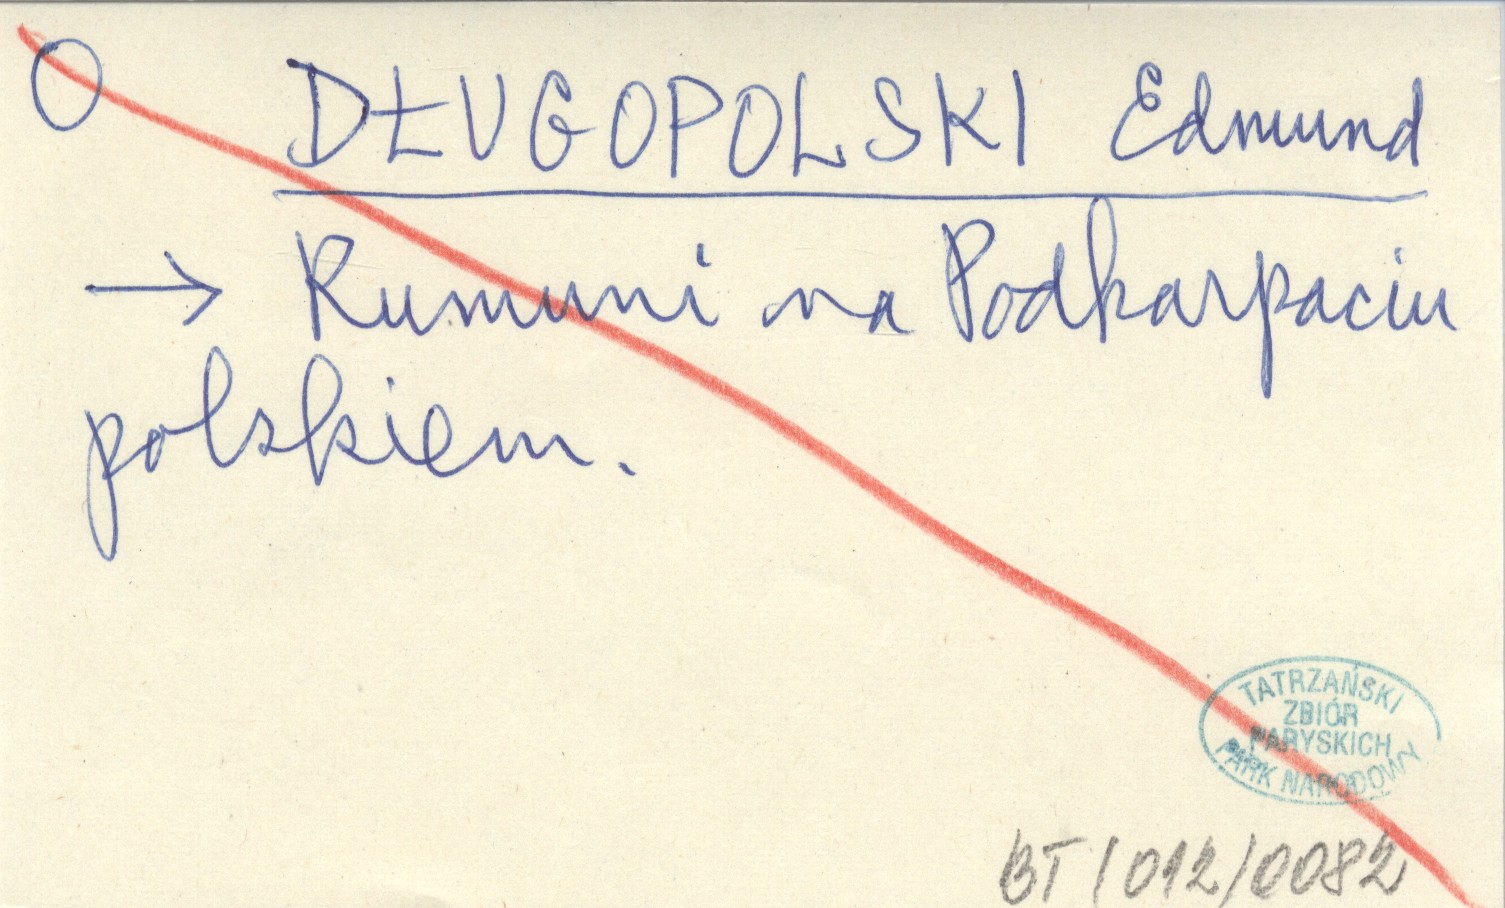 O DŁUGOPOLSKI Edmund
→ Rumuni na Podkarpaciu
polskiem.
TATRZAŃSKI
ZBIÓR
PARYSKICH
PARK NARODOWY
BT/012/0082